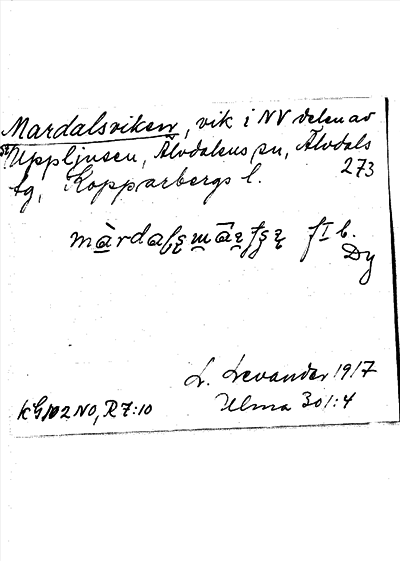 Mardalsviken, vik i NV delen av
St Uppljusen, Älvdalens sn, Älvdals
tg, Kopparbergs l. 273
f I b.
Dy
L. Levander 1917
kG 102 NO, R 7:10 Ulma 301:4